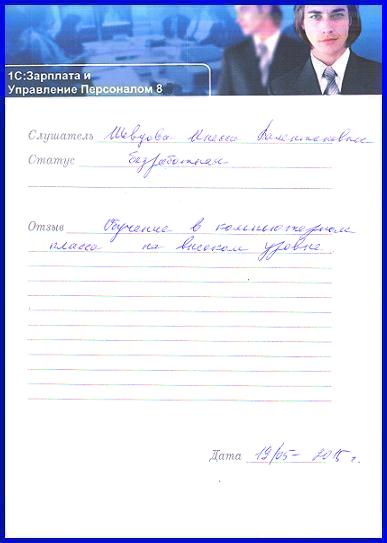 1С:Зарплата и
Управление Персоналом 8
Слушатель Шевцова Инесса Валентиновна
Статус безработная
Отзыв Обучение в компьютерном
классе на высоком уровне.
Дата 19/05- 2015 г.